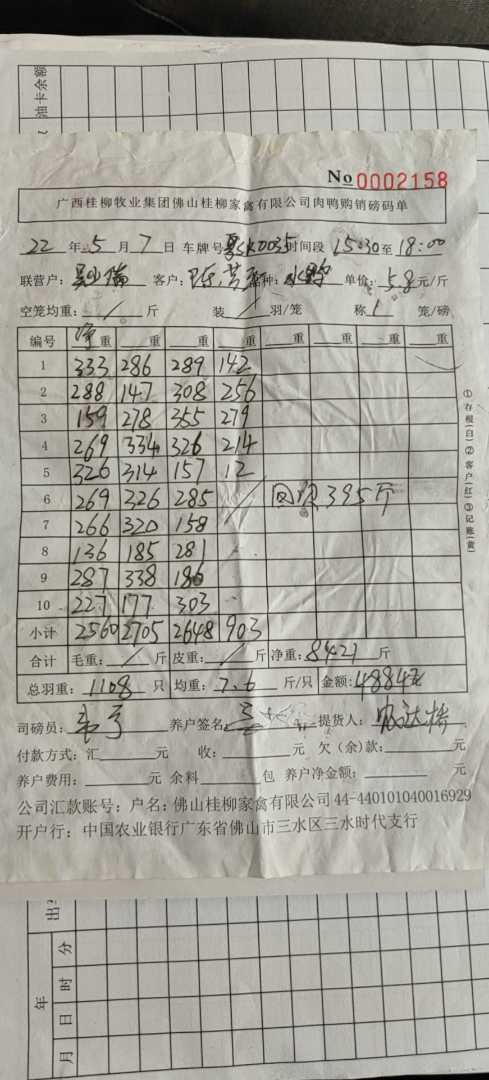 油卡余额
No 0002158
广西桂柳牧业集团佛山桂柳家禽有限公司肉鸭购销磅码单
22 年 5 月 7 日 车牌号 时间段 15:30 至 18:00
联营户: 客户: 种: 水鸭 单价: 5.8 元/斤
空笼均重: / 斤 装 / 羽/笼 称 1 笼/磅
编号 净重 重 重 重 重 重 重 重
1 333 286 289 142
2 288 147 308 256
3 159 278 355 279
4 269 334 326 214
5 326 314 157 12
6 269 326 285 395斤
7 266 320 158
8 136 185 281
9 287 338 186
10 227 177 303
小计 2560 2705 2648 903
合计 毛重: / 斤 皮重: / 斤 净重: 8421 斤
总羽重: 1108 只 均重: 7.6 斤/只 金额: 48842
司磅员: 养户签名: 提货人:
付款方式: 汇 元 收: 元 欠(余)款: 元
养户费用: 元 余料 包 养户净金额: 元
公司汇款账号: 户名: 佛山桂柳家禽有限公司 44-440101040016929
开户行: 中国农业银行广东省佛山市三水区三水时代支行
①存根(白)②客户(红)③记账(黄)
年
月 日 时 分